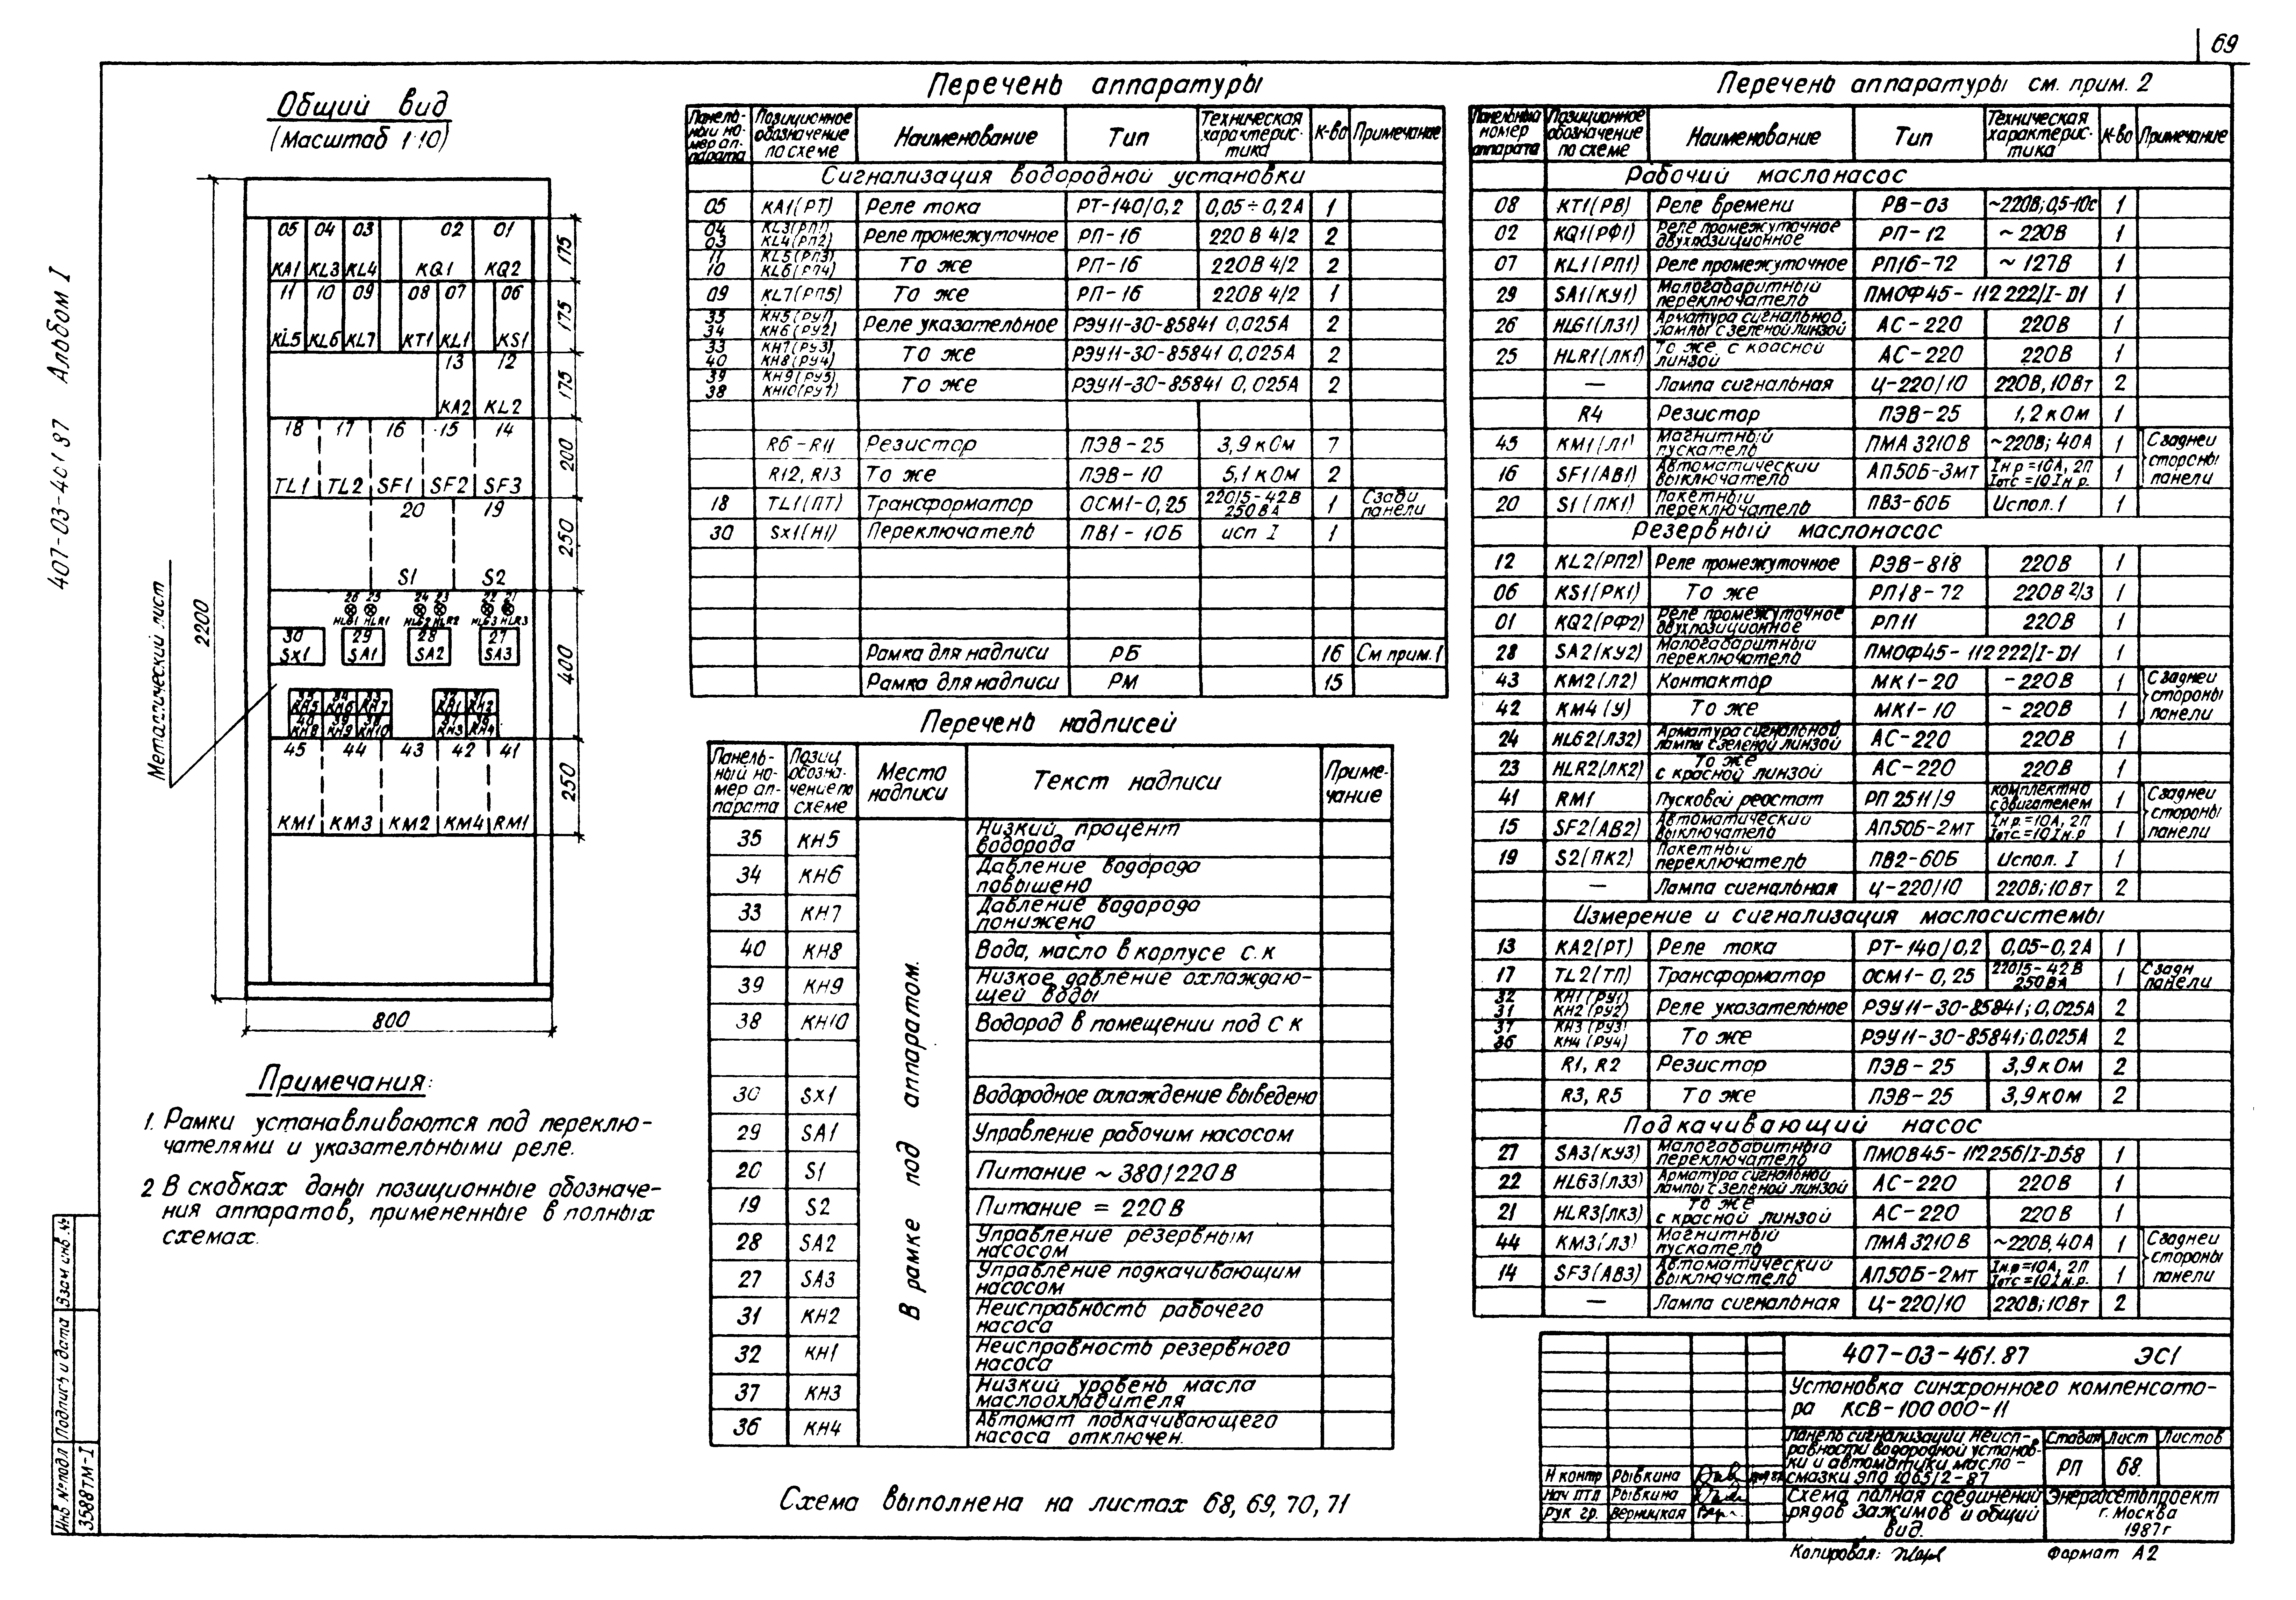 69
407-03-461 87 Альбом I
Общий вид
(Масштаб 1:10)
05 04 03 02 01
КА1 KL3 KL4 KQ1 KQ2
11 10 09 08 07 06
KL5 KL6 KL7 КТ1 KL1 KS1
13 12
КА2 KL2
18 17 16 15 14
TL1 TL2 SF1 SF2 SF3
20 19
S1 S2
26 25 24 23 22 21
HLG1 HLR1 HLG2 HLR2 HLG3 HLR3
30 29 28 27
Sx1 SA1 SA2 SA3
35 34 33 32 31
КН5 КН6 КН7 КН1 КН2
40 39 38 37 36
КН8 КН9 КН10 КН3 КН4
45 44 43 42 41
КМ1 КМ3 КМ2 КМ4 RM1
175
175
175
200
250
400
250
2200
800
Металлический лист
Примечания:
1. Рамки устанавливаются под переклю-
чателями и указательными реле.
2 В скобках даны позиционные обозначе-
ния аппаратов, примененные в полных
схемах.
Перечень аппаратуры
Панель-ный но-мер ап-парата Позиционное обозначение по схеме Наименование Тип Техническая характерис-тика К-во Примечание
Сигнализация водородной установки
05 КА1(РТ) Реле тока РТ-140/0,2 0,05÷0,2А 1
04 03 KL3(РП1) KL4(РП2) Реле промежуточное РП-16 220 В 4/2 2
11 10 KL5(РП3) KL6(РП4) То же РП-16 220В 4/2 2
09 KL7(РП5) То же РП-16 220В 4/2 1
35 34 КН5(РУ1) КН6(РУ2) Реле указательное РЭУ11-30-85841 0,025А 2
33 40 КН7(РУ3) КН8(РУ4) То же РЭУ11-30-85841 0,025А 2
39 38 КН9(РУ5) КН10(РУ7) То же РЭУ11-30-85841 0,025А 2
R6-R11 Резистор ПЭВ-25 3,9 кОм 7
R12, R13 То же ПЭВ-10 5,1 кОм 2
18 TL1(ПТ) Трансформатор ОСМ1-0,25 220/5-42В 250ВА 1 Сзади панели
30 Sx1(Н1) Переключатель ПВ1-10Б исп I 1
Рамка для надписи РБ 16 См прим.1
Рамка для надписи РМ 15
Перечень надписей
Панель-ный но-мер ап-парата Позиц обозна-чение по схеме Место надписи Текст надписи Приме-чание
В рамке под аппаратом.
35 КН5 Низкий процент водорода
34 КН6 Давление водорода повышено
33 КН7 Давление водорода понижено
40 КН8 Вода, масло в корпусе с.к
39 КН9 Низкое давление охлаждаю-щей воды
38 КН10 Водород в помещении под С К
30 Sx1 Водородное охлаждение выведено
29 SA1 Управление рабочим насосом
20 S1 Питание ~380/220В
19 S2 Питание = 220В
28 SA2 Управление резервным насосом
27 SA3 Управление подкачивающим насосом
31 КН2 Неисправность рабочего насоса
32 КН1 Неисправность резервного насоса
37 КН3 Низкий уровень масла маслоохладителя
36 КН4 Автомат подкачивающего насоса отключен.
Схема выполнена на листах 68, 69, 70, 71
Перечень аппаратуры см. прим. 2
Панельный номер аппарата Позиционное обозначение по схеме Наименование Тип Техническая характерис-тика К-во Примечание
Рабочий маслонасос
08 КТ1(РВ) Реле времени РВ-03 ~220В; 0,5-10с 1
02 KQ1(РФ1) Реле промежуточное двухпозиционное РП-12 ~220В 1
07 KL1(РП1) Реле промежуточное РП16-72 ~127В 1
29 SA1(КУ1) Малогабаритный переключатель ПМОФ45-112222/I-D1 1
26 HLG1(ЛЗ1) Арматура сигнальной лампы с зеленой линзой АС-220 220В 1
25 HLR1(ЛК1) То же с красной линзой АС-220 220В 1
— Лампа сигнальная Ц-220/10 220В, 10Вт 2
R4 Резистор ПЭВ-25 1,2 кОм 1
45 КМ1(Л1) Магнитный пускатель ПМА 3210В ~220В; 40А 1 С задней стороны панели
16 SF1(АВ1) Автоматический выключатель АП50Б-3МТ Iн.р=10А, 2П Iотс=10Iн.р. 1
20 S1(ПК1) Пакетный переключатель ПВ3-60Б Испол.1 1
Резервный маслонасос
12 KL2(РП2) Реле промежуточное РЭВ-818 220В 1
06 KS1(РК1) То же РП18-72 220В 2/3 1
01 KQ2(РФ2) Реле промежуточное двухпозиционное РП11 220В 1
28 SA2(КУ2) Малогабаритный переключатель ПМОФ45-112222/I-D1 1
43 КМ2(Л2) Контактор МК1-20 -220В 1 С задней стороны панели
42 КМ4(У) То же МК1-10 -220В 1
24 HLG2(ЛЗ2) Арматура сигнальной лампы с зеленой линзой АС-220 220В 1
23 HLR2(ЛК2) То же с красной линзой АС-220 220В 1
41 RM1 Пусковой реостат РП2511/9 комплектно с двигателем 1 С задней стороны панели
15 SF2(АВ2) Автоматический выключатель АП50Б-2МТ Iн.р.=10А, 2П Iотс=10Iн.р 1
19 S2(ПК2) Пакетный переключатель ПВ2-60Б Испол. I 1
— Лампа сигнальная Ц-220/10 220В; 10Вт 2
Измерение и сигнализация маслосистемы
13 КА2(РТ) Реле тока РТ-140/0,2 0,05-0,2А 1
17 TL2(ТП) Трансформатор ОСМ1-0,25 220/5-42В 250ВА 1 Сзади панели
32 31 КН1(РУ1) КН2(РУ2) Реле указательное РЭУ11-30-85841; 0,025А 2
37 36 КН3(РУ3) КН4(РУ4) То же РЭУ11-30-85841; 0,025А 2
R1, R2 Резистор ПЭВ-25 3,9 кОм 2
R3, R5 То же ПЭВ-25 3,9 кОм 2
Подкачивающий насос
27 SA3(КУ3) Малогабаритный переключатель ПМОВ45-112256/I-D58 1
22 HLG3(ЛЗ3) Арматура сигнальной лампы с зеленой линзой АС-220 220В 1
21 HLR3(ЛК3) То же с красной линзой АС-220 220В 1
44 КМ3(Л3) Магнитный пускатель ПМА 3210В ~220В, 40А 1 С задней стороны панели
14 SF3(АВ3) Автоматический выключатель АП50Б-2МТ Iн.р=10А, 2П Iотс=10Iн.р. 1
— Лампа сигнальная Ц-220/10 220В; 10Вт 2
407-03-461.87 ЭС1
Установка синхронного компенсато-
ра КСВ-100000-11
Панель сигнализации неисп-
равности водородной установ-
ки и автоматики масло-
смазки ЭПО 1065/2-87
Стадия Лист Листов
РП 68.
Схема полная соединений
рядов зажимов и общий
вид.
Энергосетьпроект
г. Москва
1987г
Н контр Рывкина
Нач ПТП Рывкина
Рук гр. Верницкая
Копировал:
Формат А2
Инв №подл Подпись и дата Взам инв.№
3588тм-I